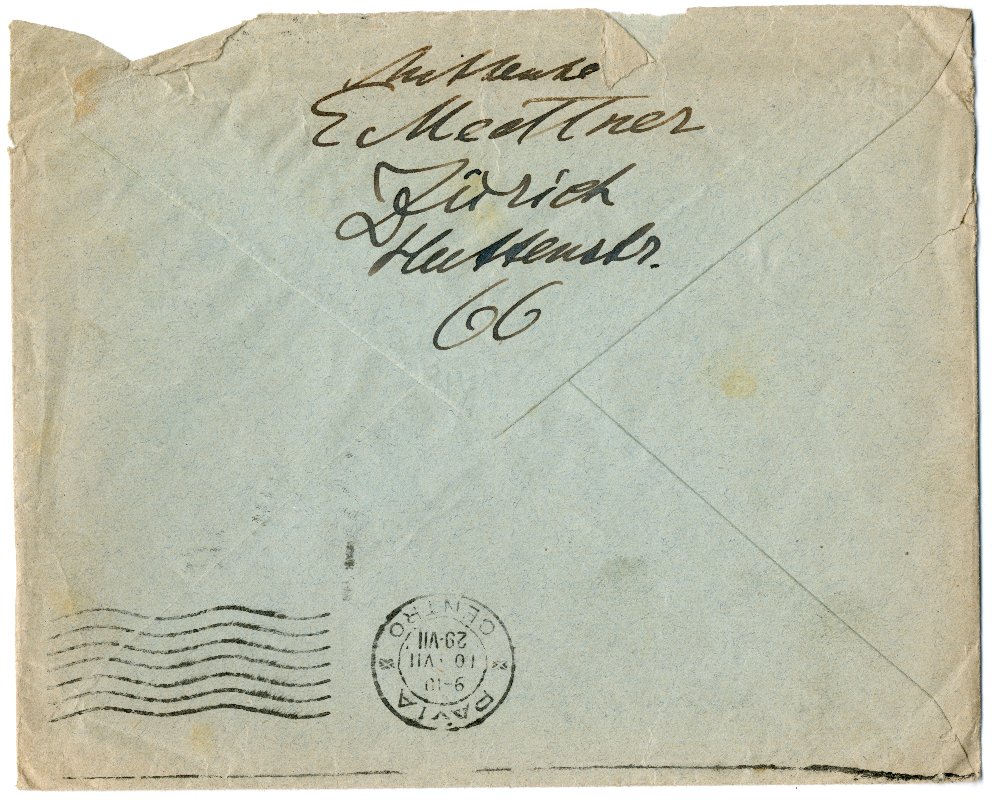 Mittente
E Medtner
Zürich
Huttenstr.
66
PAVIA
9-10
10 VII
29·VII
CENTRO